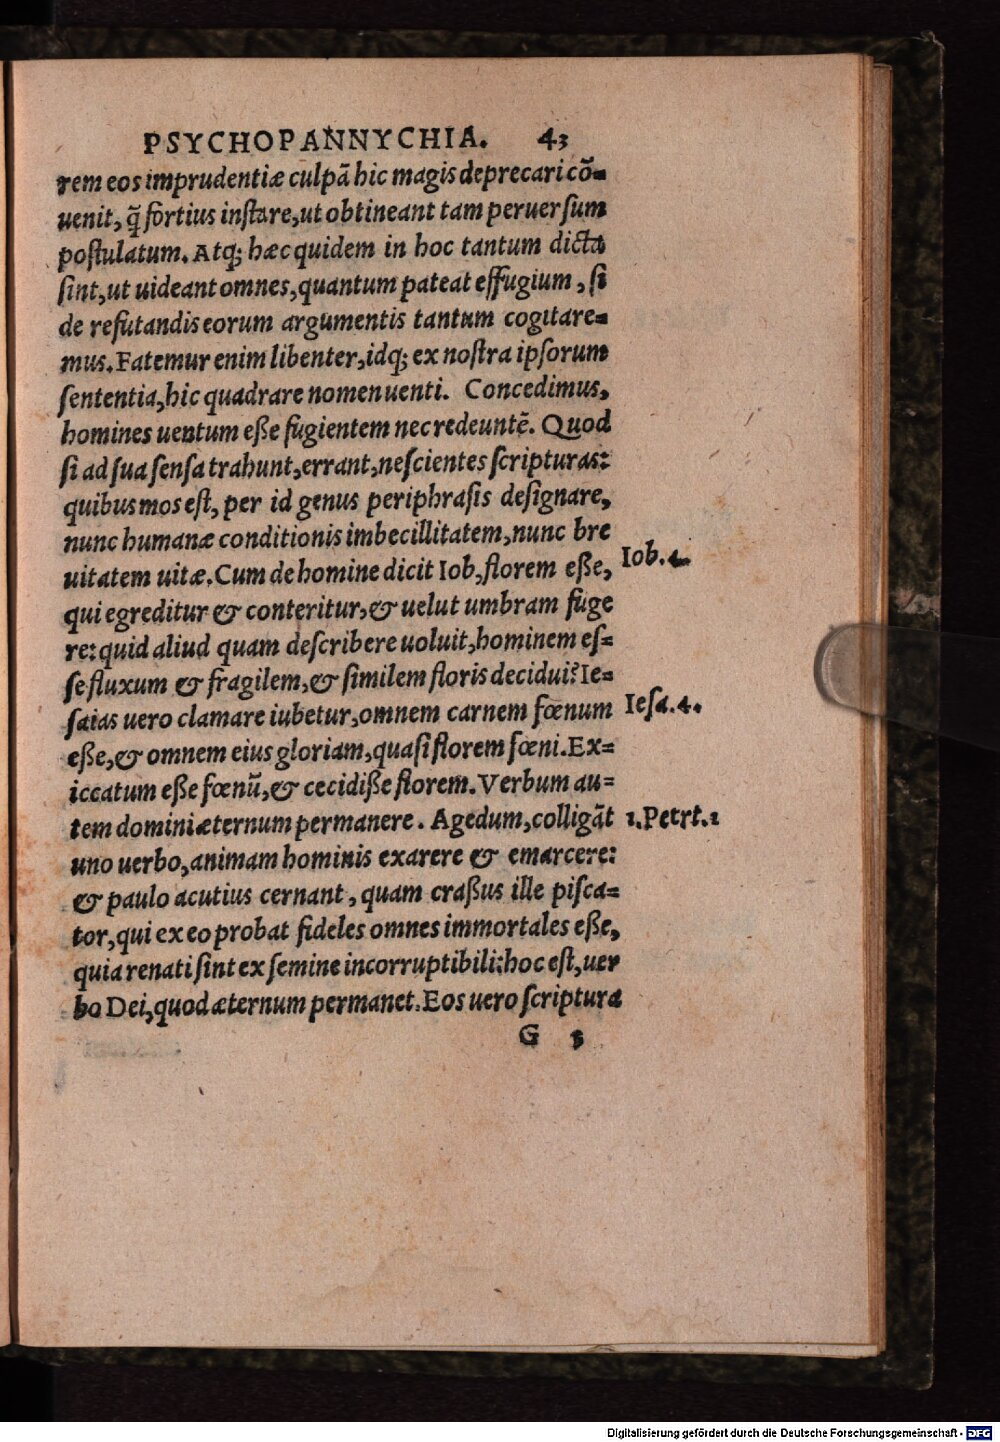 PSYCHOPANNYCHIA. 43
rem eos imprudentiæ culpã hic magis deprecari cõ-
uenit, q̃ fortius instare, ut obtineant tam peruersum
postulatum. Atq; hæc quidem in hoc tantum dicta
sint, ut uideant omnes, quantum pateat effugium, si
de refutandis eorum argumentis tantum cogitare-
mus. Fatemur enim libenter, idq; ex nostra ipsorum
sententia, hic quadrare nomen uenti. Concedimus,
homines uentum eße fugientem nec redeuntẽ. Quod
si ad sua sensa trahunt, errant, nescientes scripturas:
quibus mos est, per id genus periphrasis designare,
nunc humanæ conditionis imbecillitatem, nunc bre
uitatem uitæ. Cum de homine dicit Iob, florem eße,
Iob. 4.
qui egreditur & conteritur, & uelut umbram fuge
re: quid aliud quam describere uoluit, hominem es-
se fluxum & fragilem, & similem floris decidui? Ie-
saias uero clamare iubetur, omnem carnem fœnum
Iesa. 4.
eße, & omnem eius gloriam, quasi florem fœni. Ex-
iccatum eße fœnũ, & cecidiße florem. Verbum au-
tem domini æternum permanere. Agedum, colligãt
1. Petrt. 1
uno uerbo, animam hominis exarere & emarcere:
& paulo acutius cernant, quam craßus ille pisca-
tor, qui ex eo probat fideles omnes immortales eße,
quia renati sint ex semine incorruptibili: hoc est, uer
bo Dei, quod æternum permanet. Eos uero scriptura
G 3
Digitalisierung gefördert durch die Deutsche Forschungsgemeinschaft - DFG